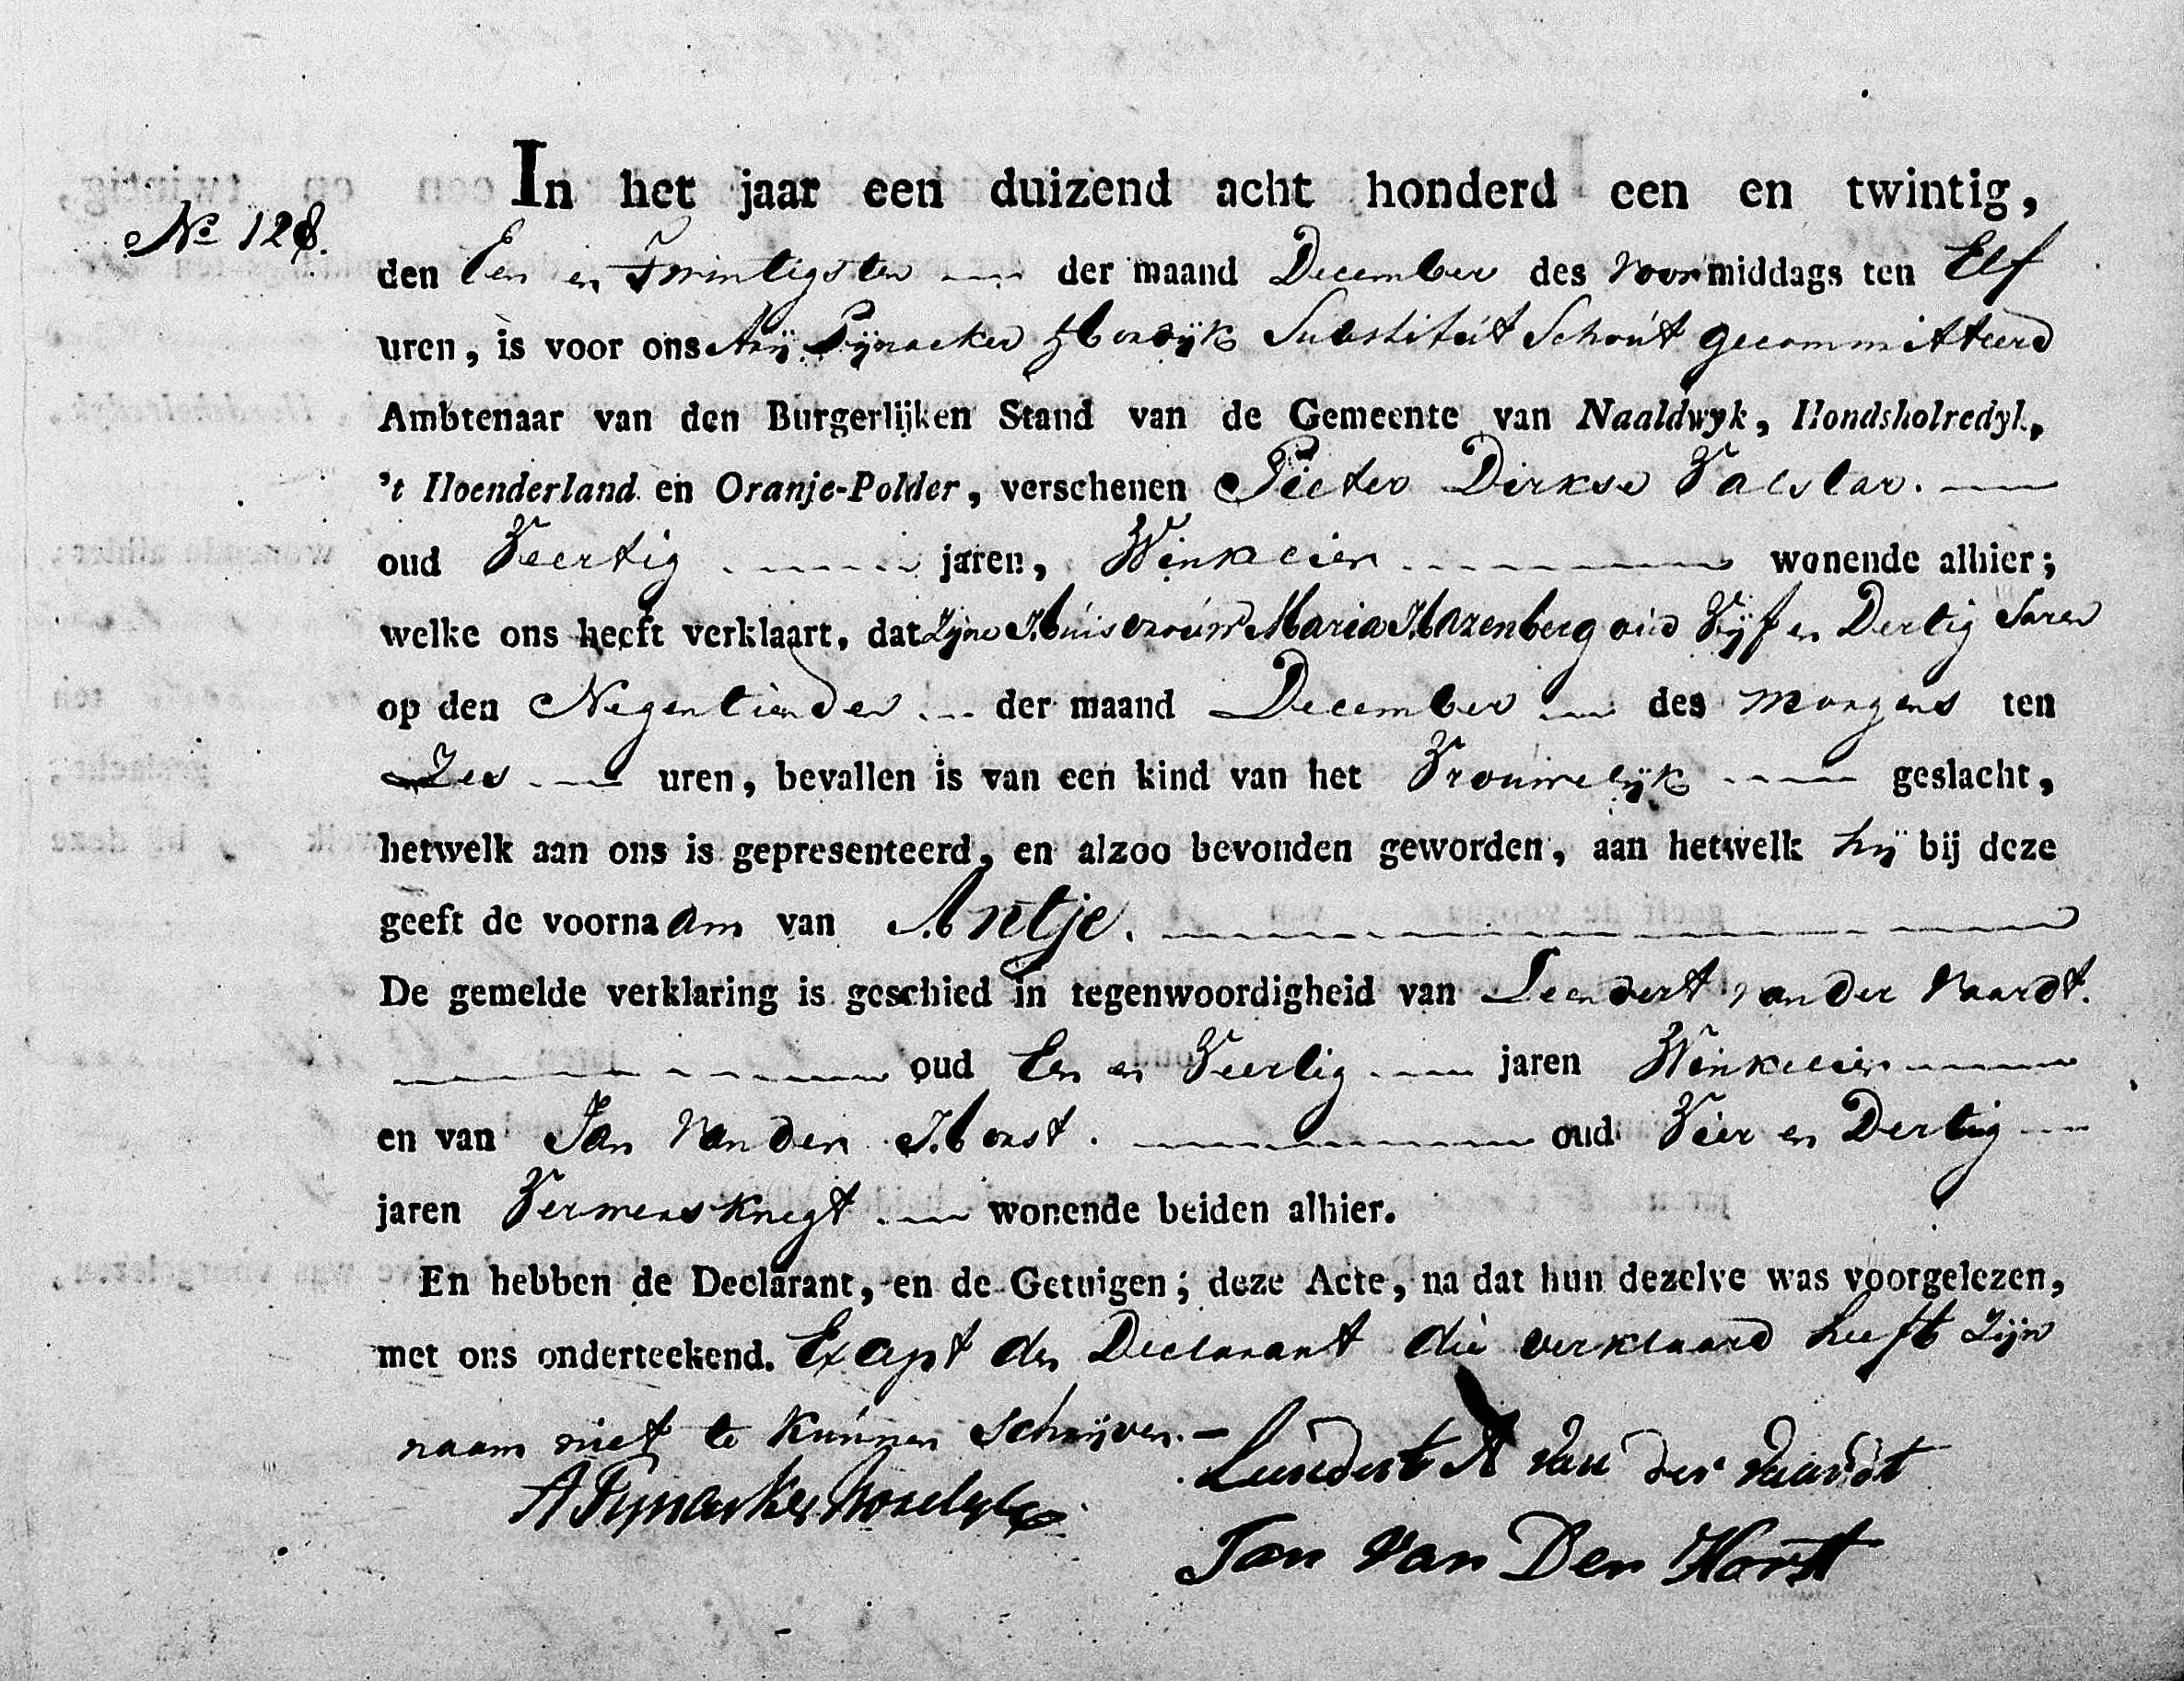 In het jaar een duizend acht honderd een en twintig,
No 128.
den Een en Twintigsten der maand December des voormiddags ten Elf
uren, is voor ons Arij Pijnacker Hordijk Substituut Schout gecommitteerd
Ambtenaar van den Burgerlijken Stand van de Gemeente van Naaldwyk, Hondsholredyk,
't Hoenderland en Oranje-Polder, verschenen Pieter Dirkse Valstar.
oud Veertig jaren, Winkelier wonende alhier;
welke ons heeft verklaart, dat Zijne Huisvrouw Maria Hazenberg oud Vijf en Dertig Jaren
op den Negentienden der maand December des morgens ten
Zes uren, bevallen is van een kind van het Vrouwelijk geslacht,
hetwelk aan ons is gepresenteerd, en alzoo bevonden geworden, aan hetwelk hij bij deze
geeft de voornaam van Antje.
De gemelde verklaring is geschied in tegenwoordigheid van Leendert van der Vaardt.
oud Een en Veertig jaren Winkelier
en van Jan van den Horst. oud Vier en Dertig
jaren Vermersknegt wonende beiden alhier.
En hebben de Declarant, en de Getuigen; deze Acte, na dat hun dezelve was voorgelezen,
met ons onderteekend. Exept den Declarant die verklaard heeft Zijn
naam niet te kunnen schrijven.
Leendert A van der Vaardt
A Pijnacker Hordijk
Jan van Den Horst